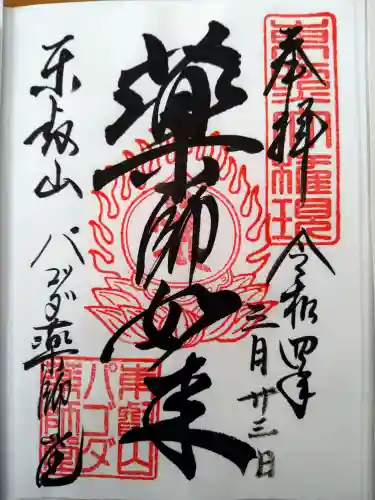 奉拝
令和四年
三月廿三日
薬師如来
東叡山
パゴダ薬師堂
東叡山
パゴダ
薬師堂